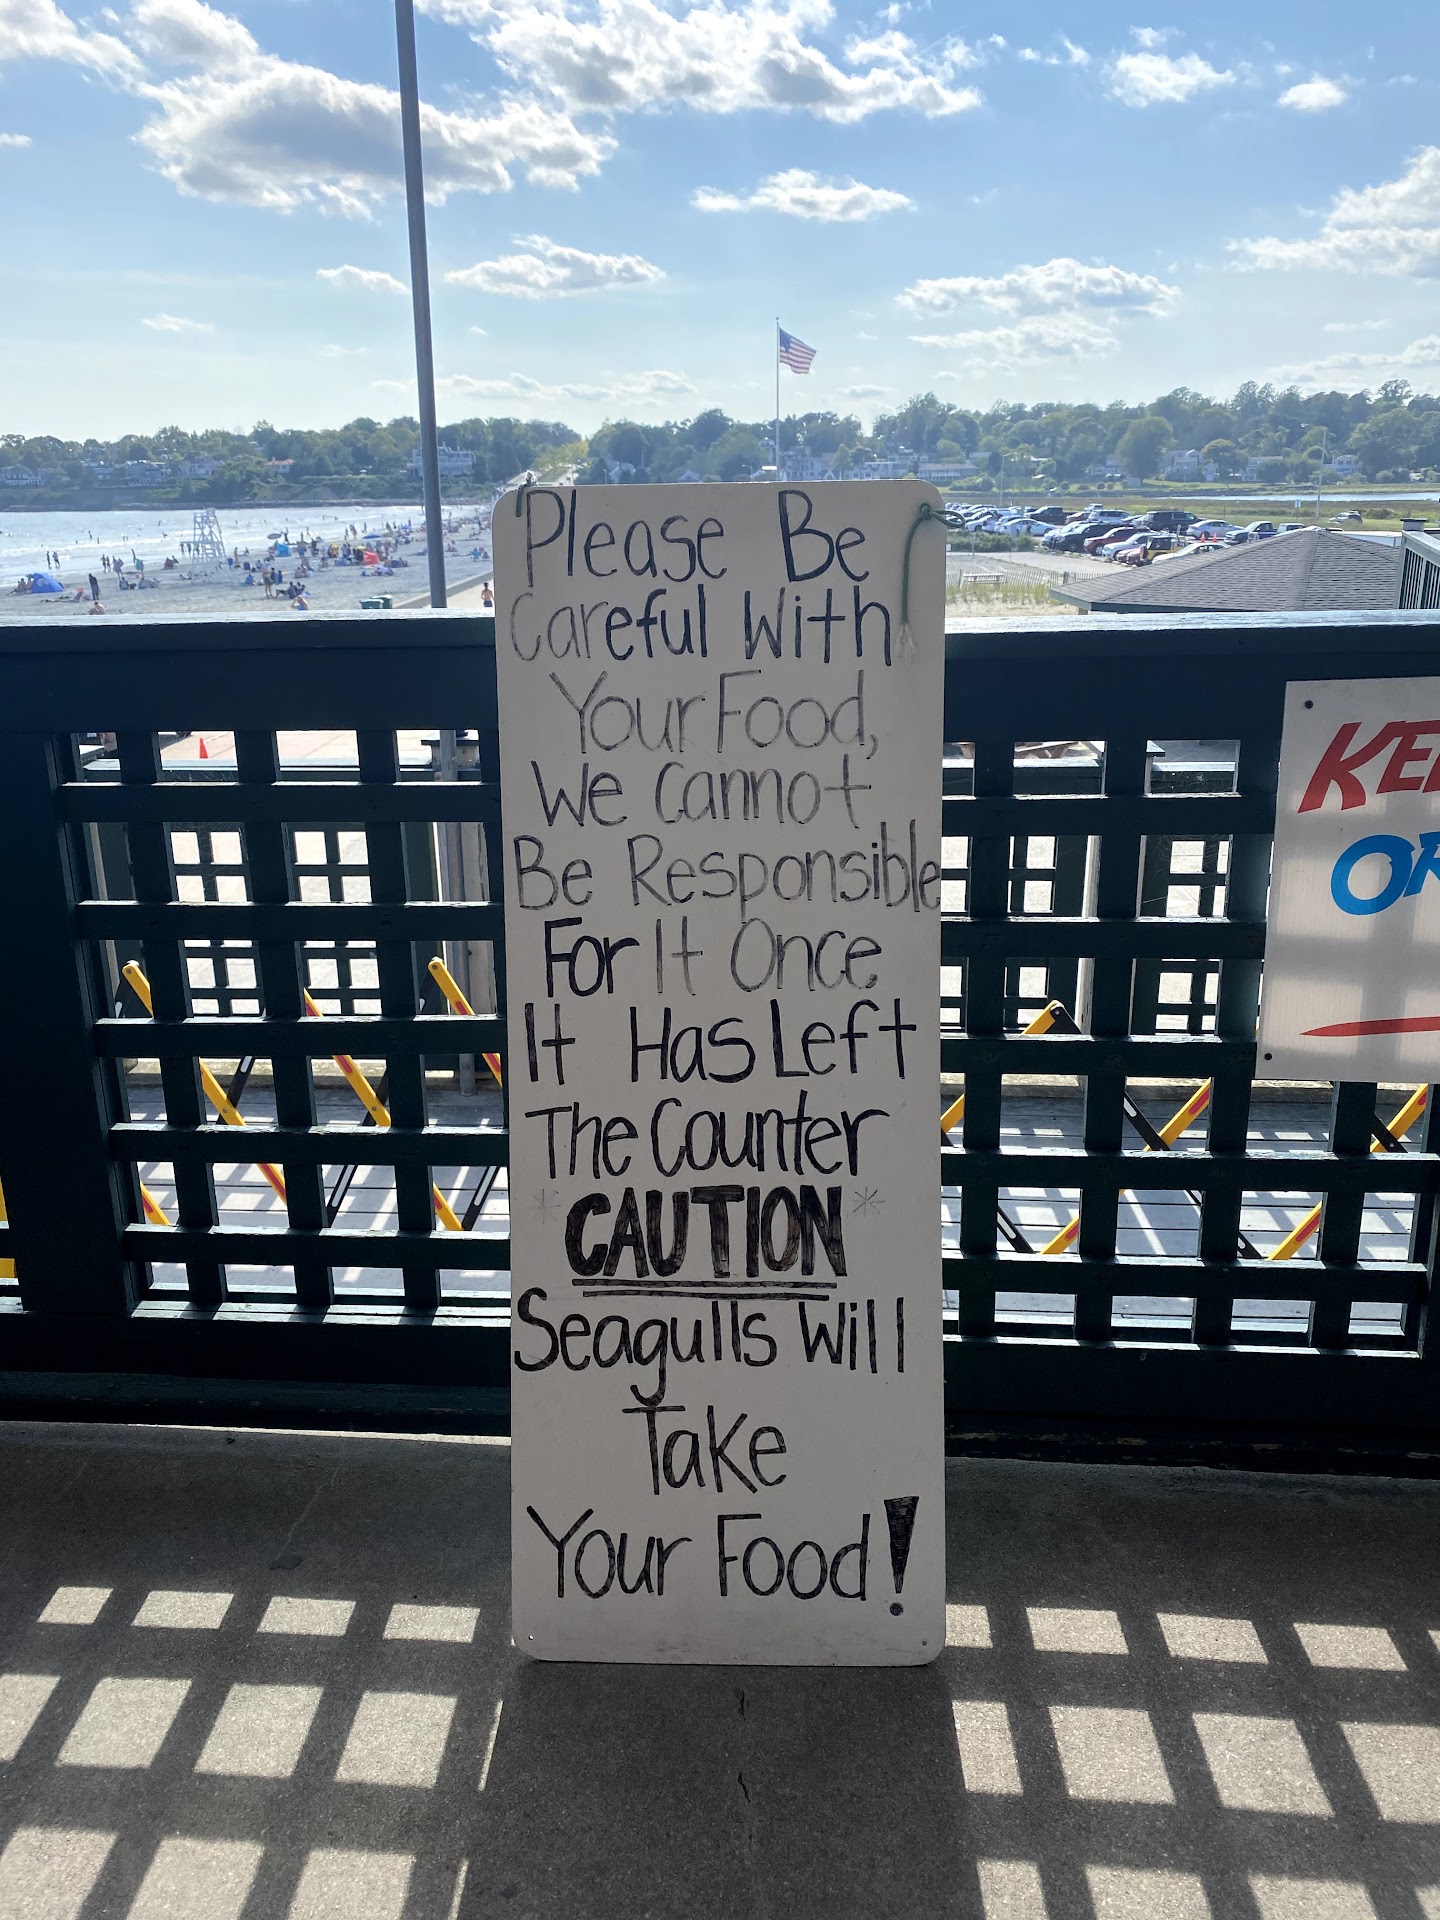 Please Be
Careful With
Your Food,
We Cannot
Be Responsible
For It Once
It Has Left
The Counter
*CAUTION*
Seagulls Will
Take
Your Food!